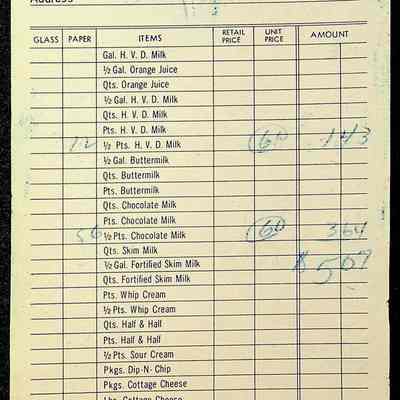 Address
GLASS PAPER ITEMS RETAIL PRICE UNIT PRICE AMOUNT
Gal. H. V. D. Milk
½ Gal. Orange Juice
Qts. Orange Juice
½ Gal. H. V. D. Milk
Qts. H. V. D. Milk
Pts. H. V. D. Milk
½ Pts. H. V. D. Milk 143
½ Gal. Buttermilk
Qts. Buttermilk
Pts. Buttermilk
Qts. Chocolate Milk
Pts. Chocolate Milk
56 ½ Pts. Chocolate Milk 364
Qts. Skim Milk
½ Gal. Fortified Skim Milk $ 507
Qts. Fortified Skim Milk
Pts. Whip Cream
½ Pts. Whip Cream
Qts. Half & Half
Pts. Half & Half
½ Pts. Sour Cream
Pkgs. Dip-N-Chip
Pkgs. Cottage Cheese
Lbs. Cottage Cheese